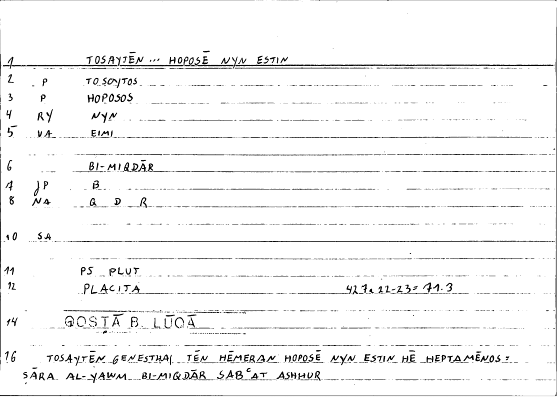 1 TOSAYTĒN ... HOPOSĒ NYN ESTIN
2 P TOSOYTOS
3 P HOPOSOS
4 RY NYN
5 VA EIMI
6 BI-MIQDĀR
7 JP B
8 NA Q D R
10 SA
11 PS PLUT
12 PLACITA 427a 22-23 = 71.3
14 QOSṬĀ B. LŪQĀ
16 TOSAYTĒN GENESTHAI TĒN HĒMERAN HOPOSĒ NYN ESTIN HĒ HEPTAMĒNOS :
SĀRA AL-YAWM BI-MIQDĀR SABʿAT ASHHUR